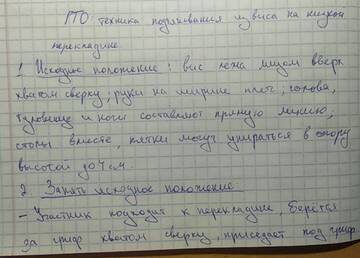 ГТО техника подтягивания из виса на низкой
перекладине.
1. Исходное положение: вис лежа лицом вверх
хватом сверху, руки на ширине плеч, голова,
туловище и ноги составляют прямую линию,
стопы вместе, пятки могут упираться в опору
высотой до 4 см.
2. Занять исходное положение
- Участник подходит к перекладине, берётся
за гриф хватом сверху, приседает под гриф